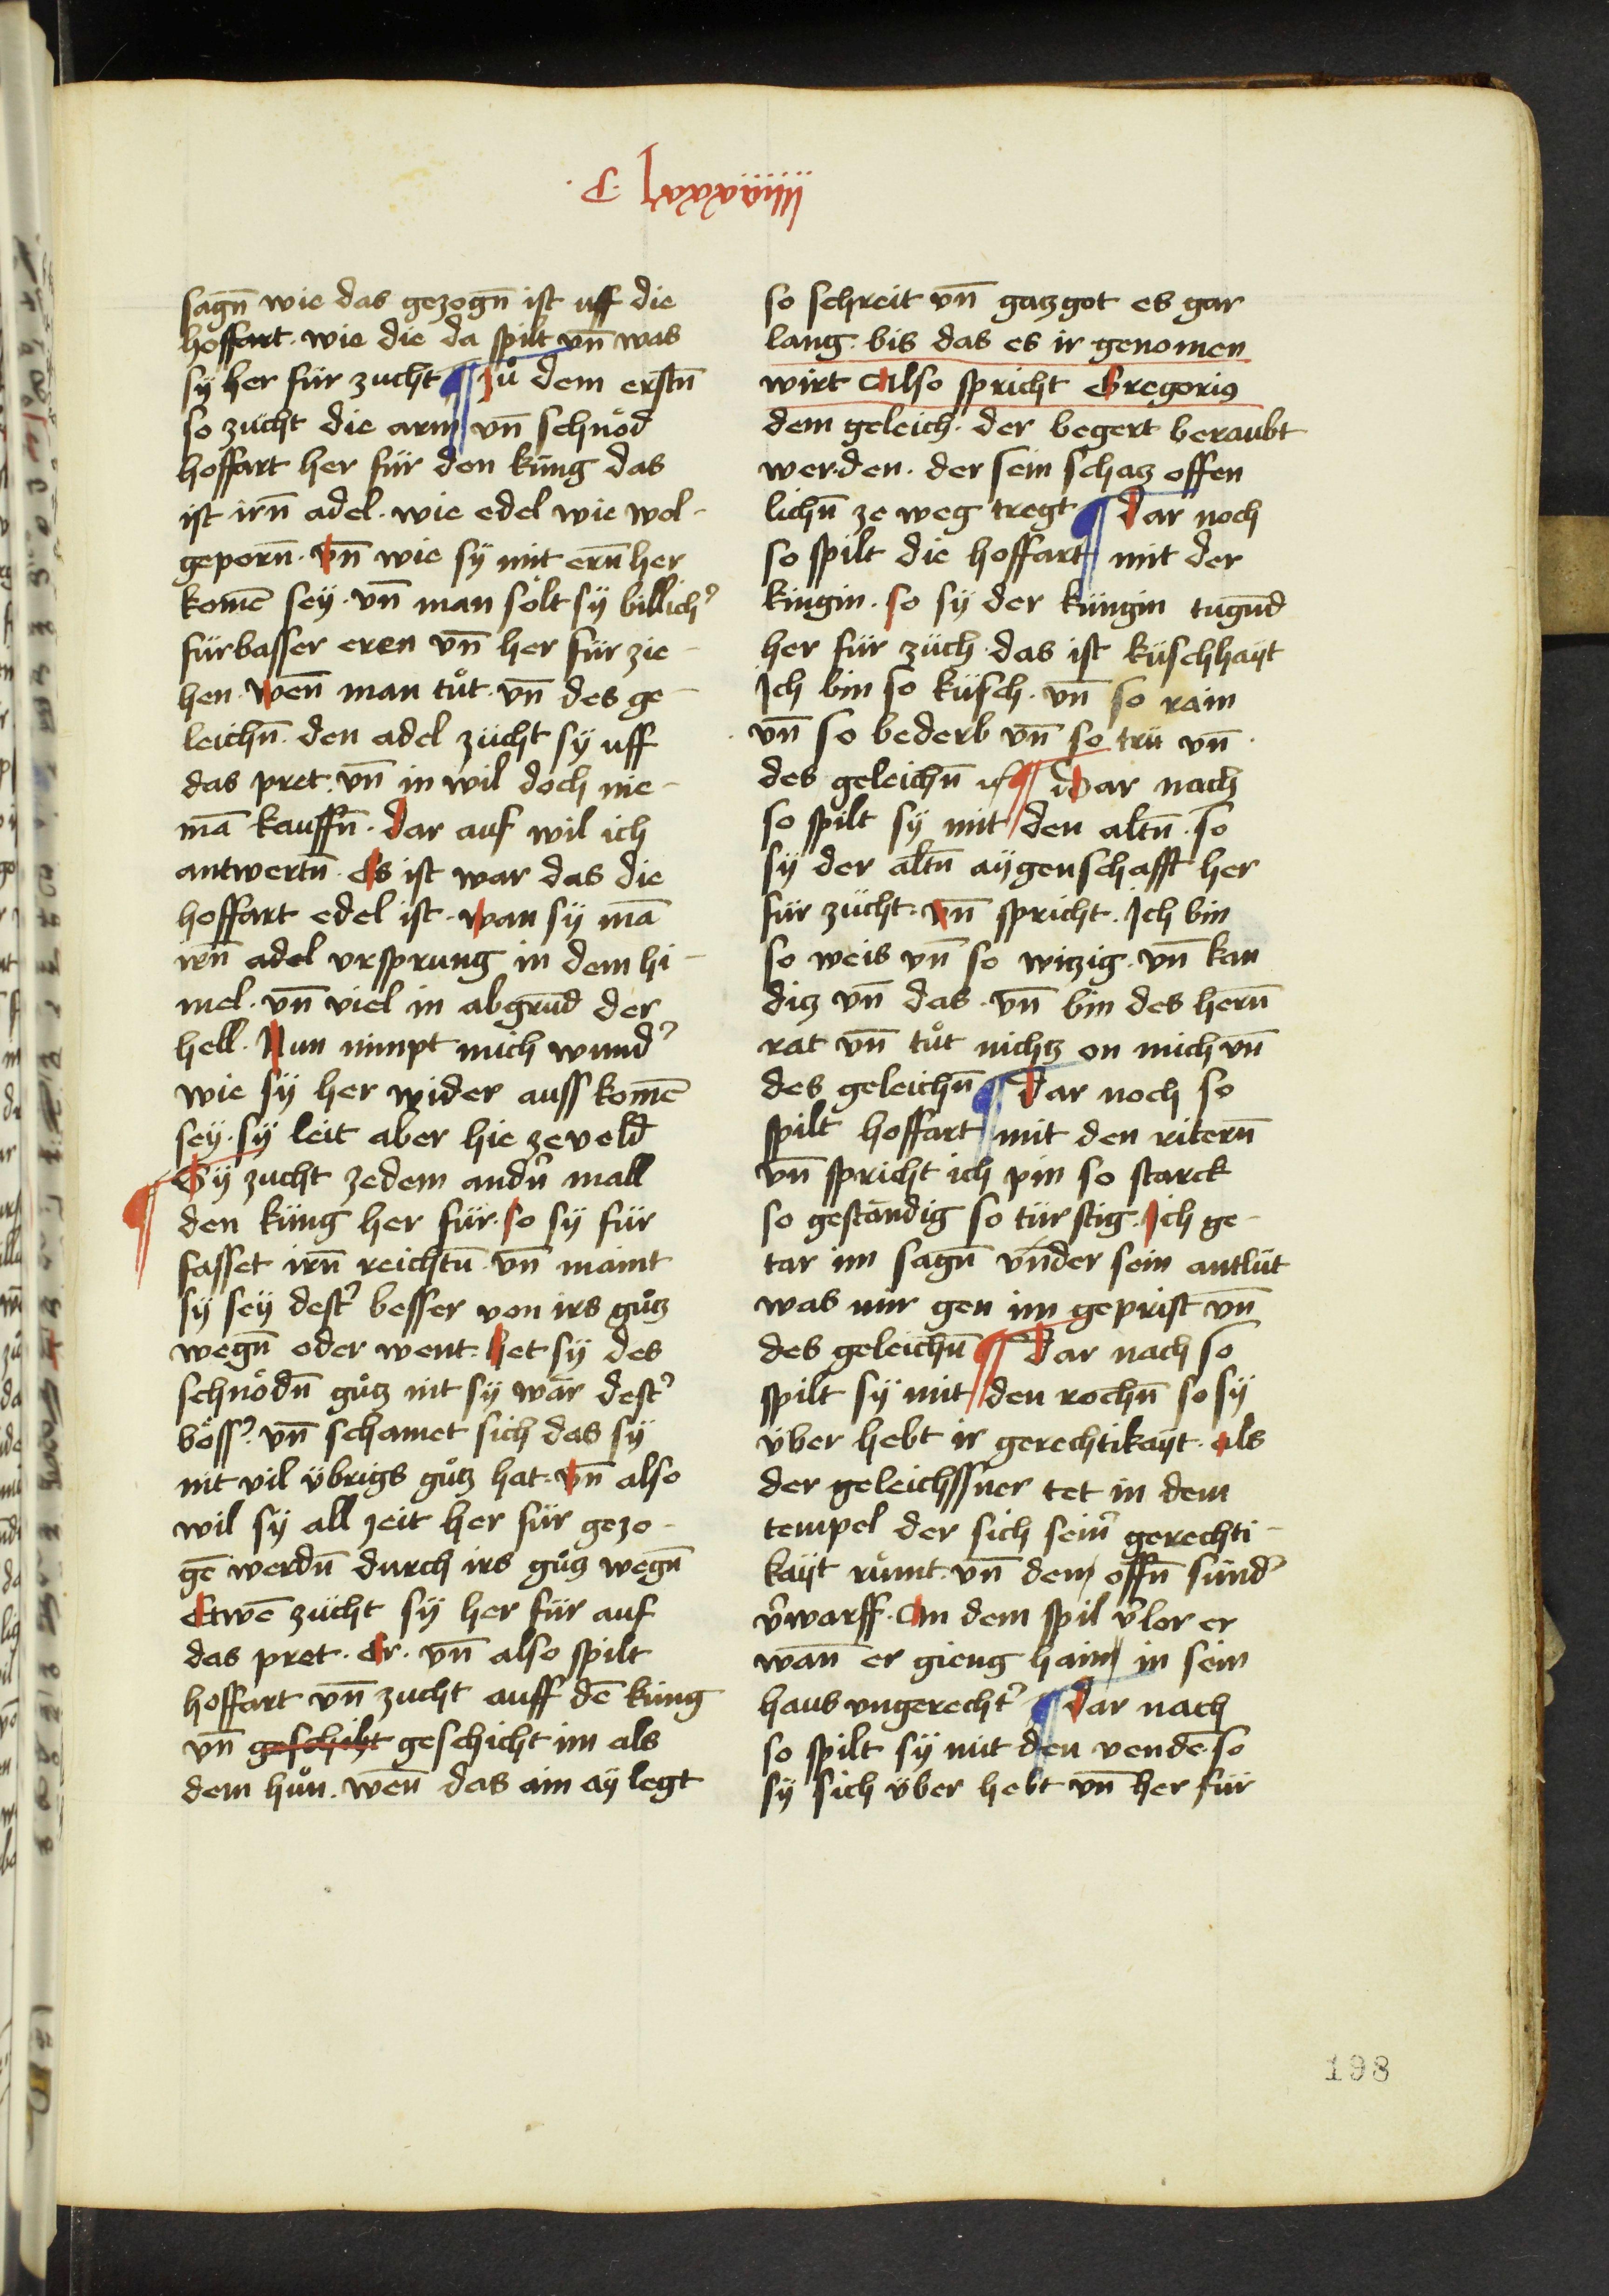 .C. lxxxxiiiij
sagn̄ wie das gezogn̄ ist uff die
hoffart. wie die da spilt vn̄ was
sÿ her für zucht ¶ Zů dem erstn̄
so zücht die arm vn̄ schnöd
hoffart her für den küng das
ist irn̄ adel. wie edel wie wol-
geporn̄. vn̄ wie sÿ mit ern̄ her
komē seÿ. vn̄ man sölt sÿ billich̾
fürbasser eren vn̄ her für zie-
hen. wen̄ man tůt. vn̄ des ge-
leichn̄. den adel zücht sÿ uff
das pret. vn̄ in wil doch nie-
mā kauffn̄. dar auf wil ich
antwertn̄. es ist war das die
hoffart edel ist. wan sÿ mā
irn̄ adel vrsprung in dem hi-
mel. vn̄ viel in abgrūd der
hell. Nun nimpt mich wund̾
wie sÿ her wider auss komē
seÿ. sÿ leit aber hie zeveld
¶ Sÿ zucht zedem andn̾ mall
den küng her für. so sÿ für
fasset irn̄ reichtū. vn̄ maint
sÿ seÿ dest̾ besser von irs gůtz
wegn̄ oder went. het sÿ des
schnödn̄ gůtz nit sÿ wär dest̾
böss̾. vn̄ schamet sich das sÿ
nit vil übrigs gůtz hat. vn̄ also
wil sÿ all zeit her für gezo-
gē werdn̄ durch irs gůtz wegn̄
Etwē zücht sÿ her für auf
das pret. Er. vn̄ also spilt
hoffart vn̄ zucht auff dē küng
vn̄ geschiht geschicht im als
dem hůn. wen̄ das ain aÿ legt
so schreit vn̄ gatzgot es gar
lang. bis das es ir genomen
wirt Also spricht Gregorius
dem geleich. der begert beraubt
werden. der sein schatz offen
lichn̄ ze weg tregt ¶ Dar noch
so spilt die hoffart mit der
kingin. so sÿ der küngin tugūd
her für züch. das ist küschhaÿt
Ich bin so küsch. vn̄ so rain
vn̄ so bederb vn̄ so trü vn̄
des geleichn̄ ¶ Dar nach
so spilt sÿ mit den altn̄. so
sÿ der altn̄ aÿgenschafft her
für zücht. vn̄ spricht. Ich bin
so weis vn̄ so witzig. vn̄ kan
ditz vn̄ das. vn̄ bin des hern̄
rat vn̄ tůt nichtz on mich vn̄
des geleichn̄ ¶ Dar noch so
spilt hoffart mit den ritern̄
vn̄ spricht ich pin so starck
so geständig so türstig. Ich ge-
tar im sagn̄ vnder sein antlüt
was mir gen im geprist vn̄
des geleichn̄ ¶ Dar nach so
spilt sÿ mit den rochn̄ so sÿ
über hebt ir gerechtikaÿt. als
der geleichssner tet in dem
tempel der sich sein̾ gerechti-
kaÿt růmt. vn̄ dem offn̄ sünd̾
v̾warff. An dem spil v̾lor er
wan̄ er gieng haim in sein
haus vngerecht̾ ¶ Dar nach
so spilt sÿ mit den venden. so
sÿ sich über hebt vn̄ her für
198